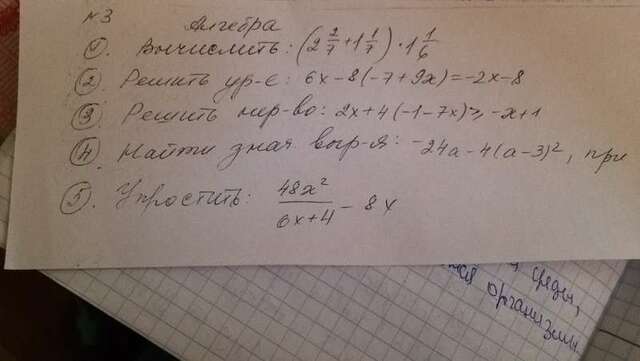 №3
Алгебра
① Вычислить: (2 2/7 + 1 1/7) · 1 1/6
② Решить ур-е: 6x-8(-7+9x)=-2x-8
③ Решить нер-во: 2x+4(-1-7x)≥-x+1
④ Найти знач. выр-я: -24a-4(a-3)², при
⑤. Упростить: 48x²/(6x+4) - 8x
организм